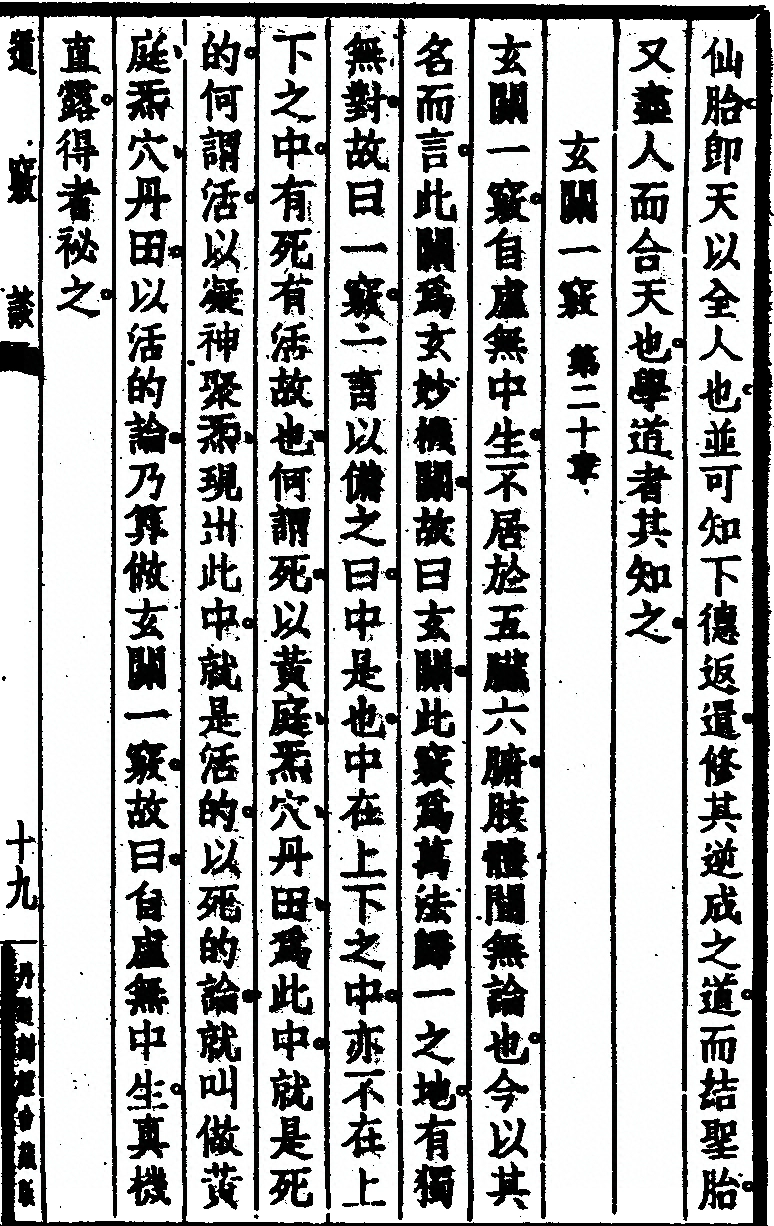 仙胎卽天以全人也並可知下德返還修其逆成之道而結聖胎
又盡人而合天也學道者其知之
玄關一竅 第二十章
玄關一竅自虛無中生不居於五臟六腑肢體間無論也今以其
名而言此關爲玄妙機關故曰玄關此竅爲萬法歸一之地有獨
無對故曰一竅一言以備之曰中是也中在上下之中亦不在上
下之中有死有活故也何謂死以黃庭炁穴丹田爲此中就是死
的何謂活以凝神聚炁現出此中就是活的以死的論就叫做黃
庭炁穴丹田以活的論乃算做玄關一竅故曰自虛無中生眞機
直露得者祕之
道竅談
十九